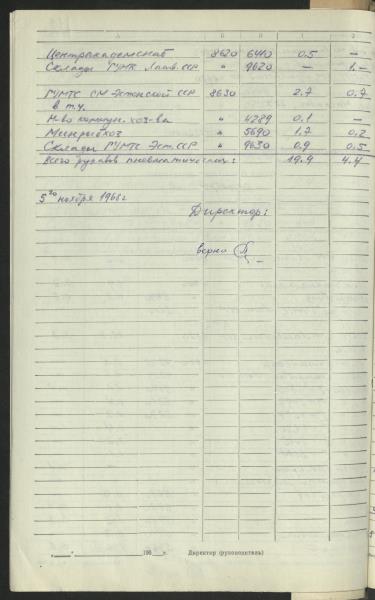 А Б В 1 2
Центракадемснаб 8620 6410 0.5 —
Склады ГУМТС Латв. ССР " 9620 — 1.-
ГУМТС СМ Эстонской ССР 8630 2.7 0.7
в т.ч.
М-во коммун. хоз-ва " 4289 0.1 —
Минрыбхоз " 5690 1.7 0.2
Склады ГУМТС Эст. ССР " 9630 0.9 0.5
Всего рукавов пневматических: 19.9 4.4
5го ноября 1966 г
Директор:
верно
"___" ___ 196__ г. Директор (руководитель)